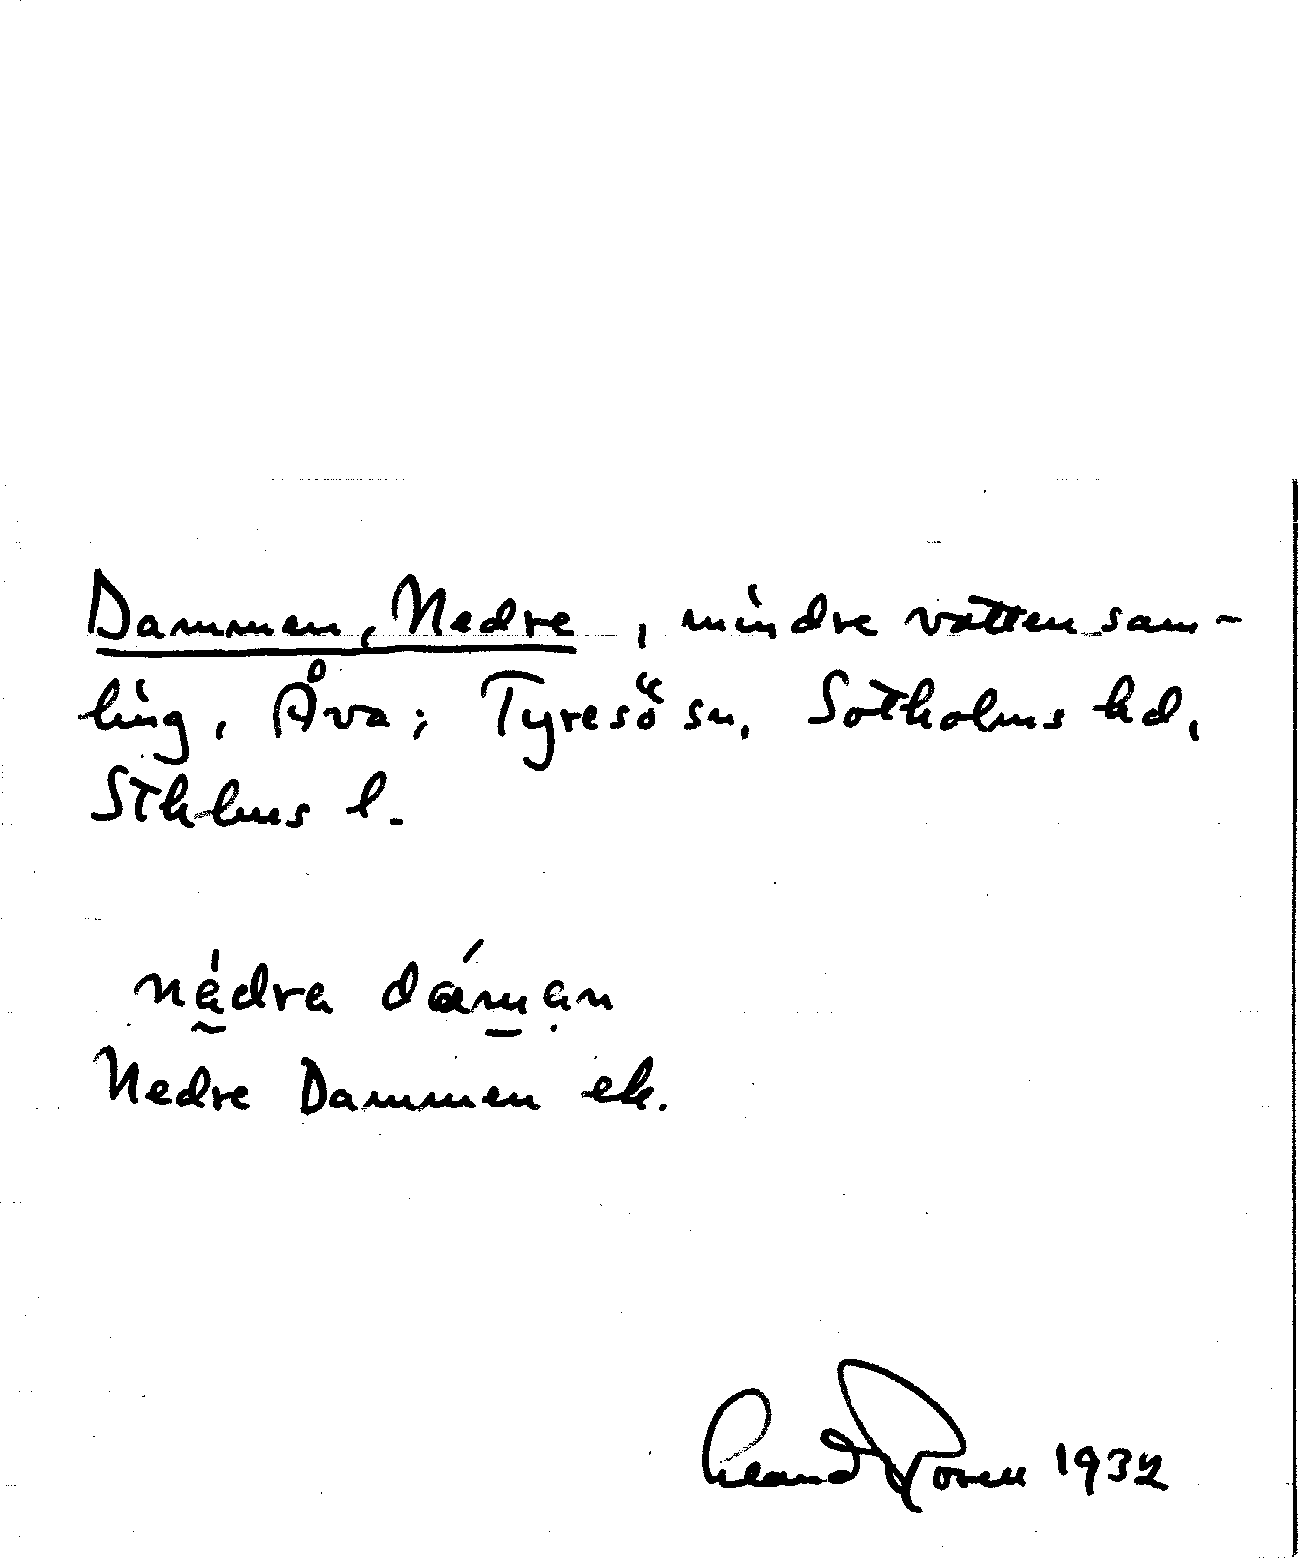 Dammen, Nedre, mindre vattensam-
ling, Åva; Tyresö sn, Sotholms hd,
Sthlms l.
nedra daman
Nedre Dammen ek.
1932